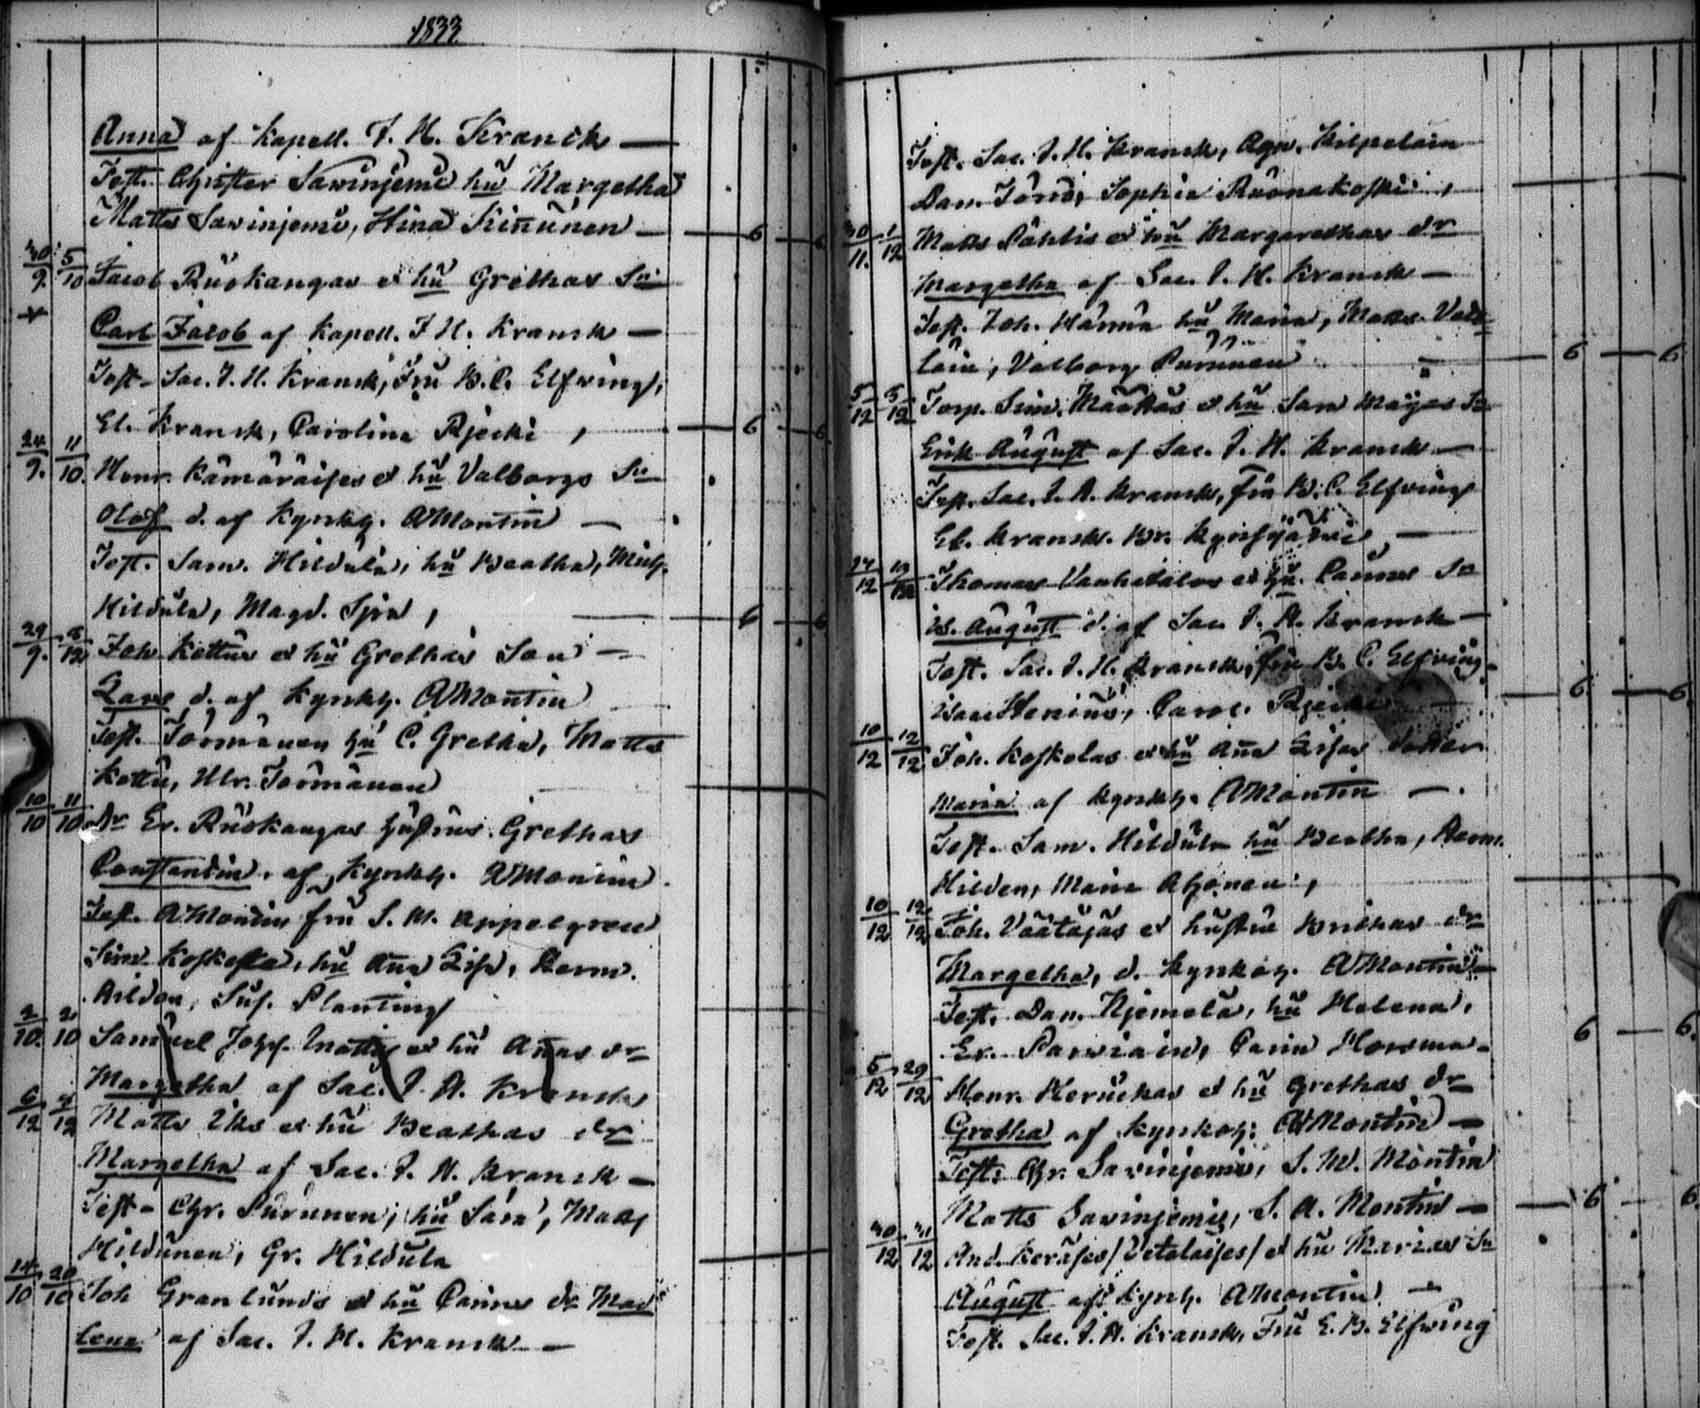 1833
Anna af Kapell. J. H. Kranck —
Test. Christer Sawinjemi hu Margetha
Matts Sawinjemi, Hina Kinunen — 6 6
30/9 5/10 Jacob Ruokangas et hu Grethas Sn
Carl Jacob af Kapell. J H. Kranck —
Test. Sac. J. H. Kranck, Fru B. C. Elfwing,
El. Kranck, Carolina 6 6
24/9. 11/10. Henr. Kämäräises et hu Valborgs Sn
Olof d. af Kyrkhj. A Montin —
Test. Sam. Hildula, hu Beatha, Mich.
Hildula, Magd. 6 6
29/9. Joh Kottus et hu Grethas Son —
Lars d. af Kyrkhj. A Montin
Test. Törmänen hu C. Gretha, Matts
Kottu, Ulr. Törmänen
10/10 11/10 dr Er. Ruokangas hustrus Grethas
Constantin. af Kyrkhj. A Montin
Test. A Montin fru S. M. Appelgren
Sim. hu Ana Lisa, Herm.
Hilden, Sus. Planting
2/10. 2/10 Samuel et hu Anas dr
Margetha af Sac. J. H. Kranck
6/12 Matts et hu Beathas dr
Margetha af Sac. J. H. Kranck —
Test. Chr. Purunen, hu Sara, Mats
Hildunen, Gr. Hildula
14/10 20/10 Joh Granlunds et hu Carins dr Mad
lena af Sac. J. H. Kranck —
Test. Sac. J. H. Kranck, Agn. Kilpelain
Dan. Sophia Ruonakoski,
30/11. 1/12 Matts et hu Margarethas dr
Margetha af Sac. J. H. Kranck —
Test. Joh. hu Maria, Matts
Valborg Purunen — 6 6
5/12 5/12 Torp. Sim. et hu Sara Majas Sn
Erik August af Sac. J. H. Kranck —
Test. Sac. J. H. Kranck, fru B. C. Elfwing
El. Kranck. Br. —
Thomas et hu. Carins Sn
Is. August d. af Sac J. H. Kranck —
Test. Sac. J. H. Kranck, fru B. C. Elfwing
Isac Henius, Carol. 6 6
10/12 12/12 Joh. Koskelas et hu Ana Lisas dotter
Maria af Kyrkhj. A Montin —
Test. Sam. Hildula hu Beatha, Herm.
Hilden, Maria Ahonen,
10/12 12/12 Joh. Väätäjäs et hustru Britas dr
Margetha, d. Kyrkhj. A Montin —
Test. Dan. Njemelä, hu Helena,
Er. Parviain, Carin 6 6
5/12 29/12 Henr. et hu Grethas dr
Gretha af Kyrkhj. A Montin —
Test. Chr. Savinjemi, S. M. Montin
Matts Savinjemi, S. A. Montin — 6 6
30/12 31/12 And. Keräses et hu Marias Sn
August af Kyrkhj. A Montin. —
Test. Sac. J. H. Kranck, Fru E. B. Elfwing